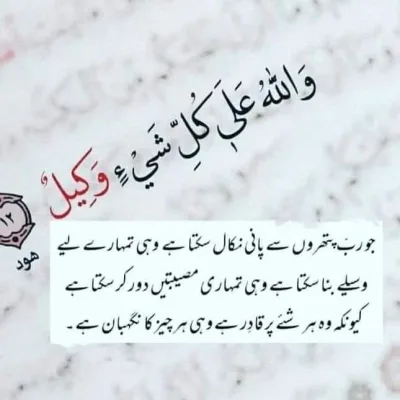 وَاللّٰهُ عَلٰى كُلِّ شَيْءٍ وَكِيلٌ
١٢
هود
جو ربّ پتھروں سے پانی نکال سکتا ہے وہی تمہارے لیے
وسیلے بنا سکتا ہے وہی تمہاری مصیبتیں دور کر سکتا ہے
کیونکہ وہ ہر شئے پر قادِر ہے وہی ہر چیز کا نگہبان ہے ۔